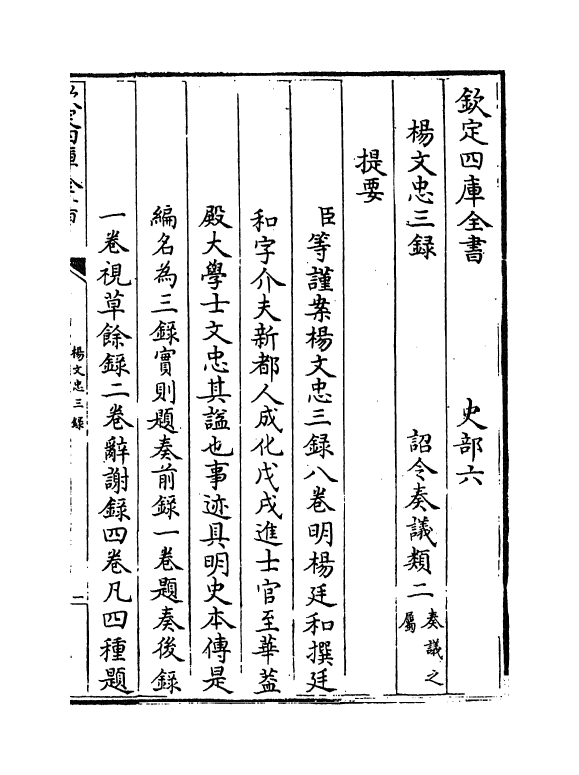 欽定四庫全書　史部六
楊文忠三録　詔令奏議類二奏議之屬
提要
臣等謹案楊文忠三録八卷明楊廷和撰廷
和字介夫新都人成化戊戌進士官至華葢
殿大學士文忠其諡也事迹具明史本傳是
編名為三錄實則題奏前錄一卷題奏後錄
一卷視草餘錄二卷辭謝錄四卷凡四種題
欽定四庫全書
楊文忠三録
一